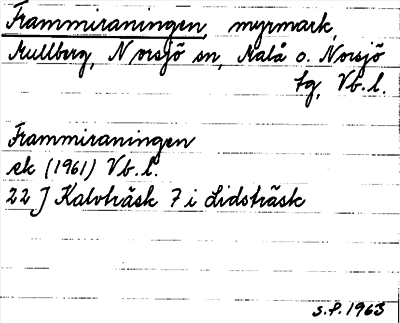 Frammiraningen, myrmark,
Mullberg, Norsjö sn, Malå o. Norsjö
tg, Vb.l.
Frammiraningen
ek (1961) Vb.l.
22 J Kalvträsk 7 i Lidsträsk
s.f. 1963